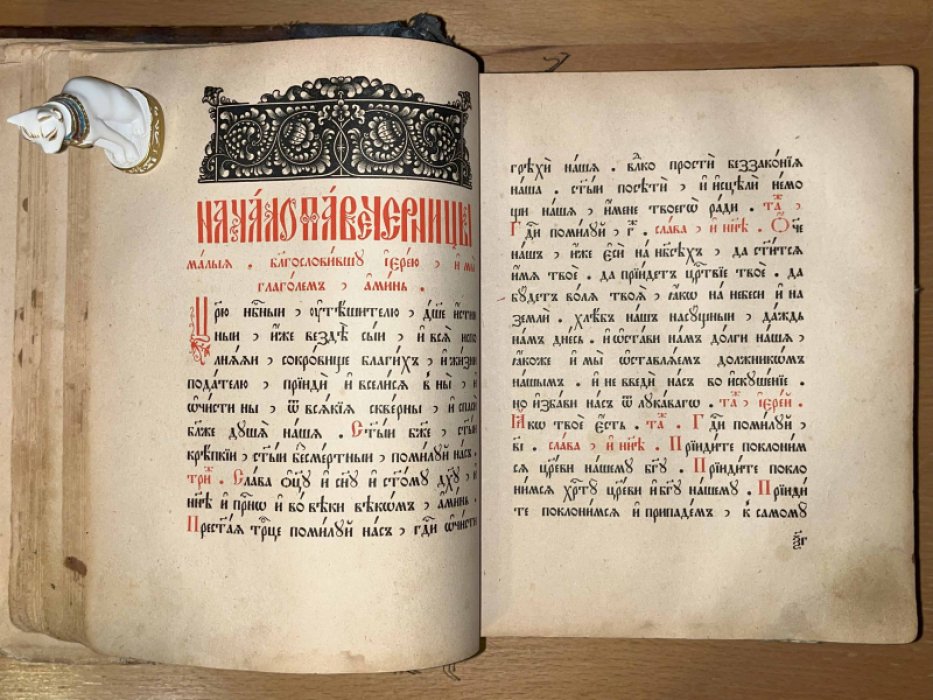 НАЧА́ЛО ПА́ВЕЧЕРНИЦЫ
ма́лыѧ . бл҃гослови́вшꙋ і҆ере́ю , и҆ мы̀
глаго́лемъ , а҆ми́нь .
Цр҃ю нбⷭ҇ныи , ᲂу҆тѣ́шителю , дш҃е и҆́стин
ныи , и҆́же вездѣ̀ сы́и , и҆ всѧ̀ испо
лнѧ́ѧи , сокро́вище благи́хъ , и҆ жи́зни
пода́телю , прїидѝ и҆ всели́сѧ в ны̀ , и҆
ѡ҆чи́сти ны , ѿ всѧ́кїѧ скве́рны , и҆ спасѝ
бл҃же дꙋ́шѧ на́шѧ . Ст҃ы́и бж҃е , ст҃ы́и
крѣ́пкїи , ст҃ы́и бесме́ртныи , поми́лꙋй на́съ .
три́ . Сла́ва ѻ҆ц҃ꙋ̀ и҆ сн҃ꙋ и҆ ст҃о́мꙋ дх҃ꙋ , и҆
ны́нѣ и҆ при́снѡ и҆ во́ вѣки вѣкѡ́мъ , а҆ми́нь .
Прест҃а́ѧ трⷪ҇це поми́лꙋй на́съ , гдⷭ҇и ѡ҆чи́сти
грѣхѝ на́шѧ . влⷣко простѝ беззако́нїѧ
на́ша . ст҃ы́и посѣтѝ , и҆ и҆сцѣлѝ не́мо
щи на́шѧ , и҆́мене твоегѡ̀ ра́ди . таⷤ ,
Гдⷭ҇и поми́лꙋй , г҃ . сла́ва , и҆ ны́нѣ . Ѻ҆́ч҃е
на́шъ , и҆́же є҆сѝ на нбⷭ҇ѣхъ , да ст҃и́тсѧ
и҆́мѧ твоѐ . да прїи́детъ црⷭ҇твїе твоѐ . да
бꙋ́детъ во́лѧ твоѧ̀ , ꙗ҆́кѡ на небесѝ и҆ на
землѝ . хлѣ́бъ на́шъ насꙋ́щныи , да́ждь
на́мъ дне́сь . и҆ ѡ҆ста́ви на́мъ до́лги на́шѧ ,
ꙗ҆́коже и҆ мы̀ ѡ҆ставлѧ́емъ должнико́мъ
на́шымъ . и҆ не введѝ на́съ во и҆скꙋше́нїе .
но и҆зба́ви на́съ ѿ лꙋка́вагѡ . таⷤ , і҆ере́й .
Ꙗ҆́кѡ твоѐ є҆́сть . таⷤ . Гдⷭ҇и поми́лꙋй ,
ві҃ . сла́ва , и҆ ны́нѣ . Прїиди́те поклони́м
сѧ цр҃еви на́шемꙋ бг҃ꙋ . Прїиди́те покло
ни́мсѧ хрⷭ҇тꙋ̀ цр҃еви и҆ бг҃ꙋ на́шемꙋ . Прїиди́
те поклони́мсѧ и҆ припаде́мъ , к самомꙋ̀